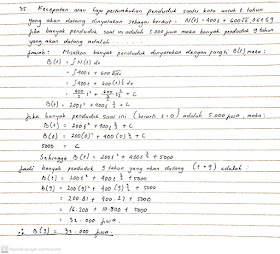 35. Kecepatan atau laju pertumbuhan penduduk suatu kota untuk t tahun
yang akan datang dinyatakan sebagai berikut = N(t) = 400t + 600√t, 0≤t≤9
Jika banyak penduduk saat ini adalah 5.000 jiwa maka banyak penduduk 9 tahun
yang akan datang adalah ........
Jawab : Misalkan banyak penduduk dinyatakan dengan fungsi B(t), maka :
B(t) = ∫ N(t) dt
= ∫ 400t + 600√t dt
= ∫ 400t + 600(t)½ dt
= 400/2 t² + 600/(3/2) t^3/2 + C
B(t) = 200t² + 400t^3/2 + C
Jika banyak penduduk saat ini (berarti t=0) adalah 5.000 jiwa, maka
B(t) = 200t² + 400t^3/2 + C
B(0) = 200(0)² + 400(0)^3/2 + C
5000 = C
Sehingga B(t) = 200t² + 400t^3/2 + 5000
Jadi banyak penduduk 9 tahun yang akan datang (t=9) adalah :
B(t) = 200t² + 400t^3/2 + 5000
B(9) = 200(9)² + 400(9)^3/2 + 5000
= 200.81 + 400.27 + 5000
= 16.200 + 10.800 + 5000
= 32.000 jiwa.
∴ B(9) = 32.000 jiwa.